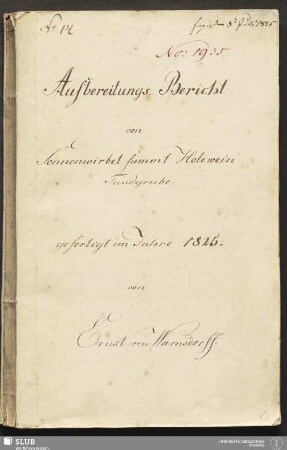 No 14
No: 1935
Aufbereitungs Bericht
von
Sonnenwirbel sammt Holewein
Fundgrube.
gefertigt im Jahre 1825.
von
Ernst von Warnsdorff.
SLUB